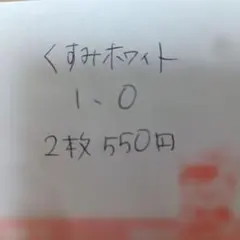 くすみホワイト
1、0
2枚 550円